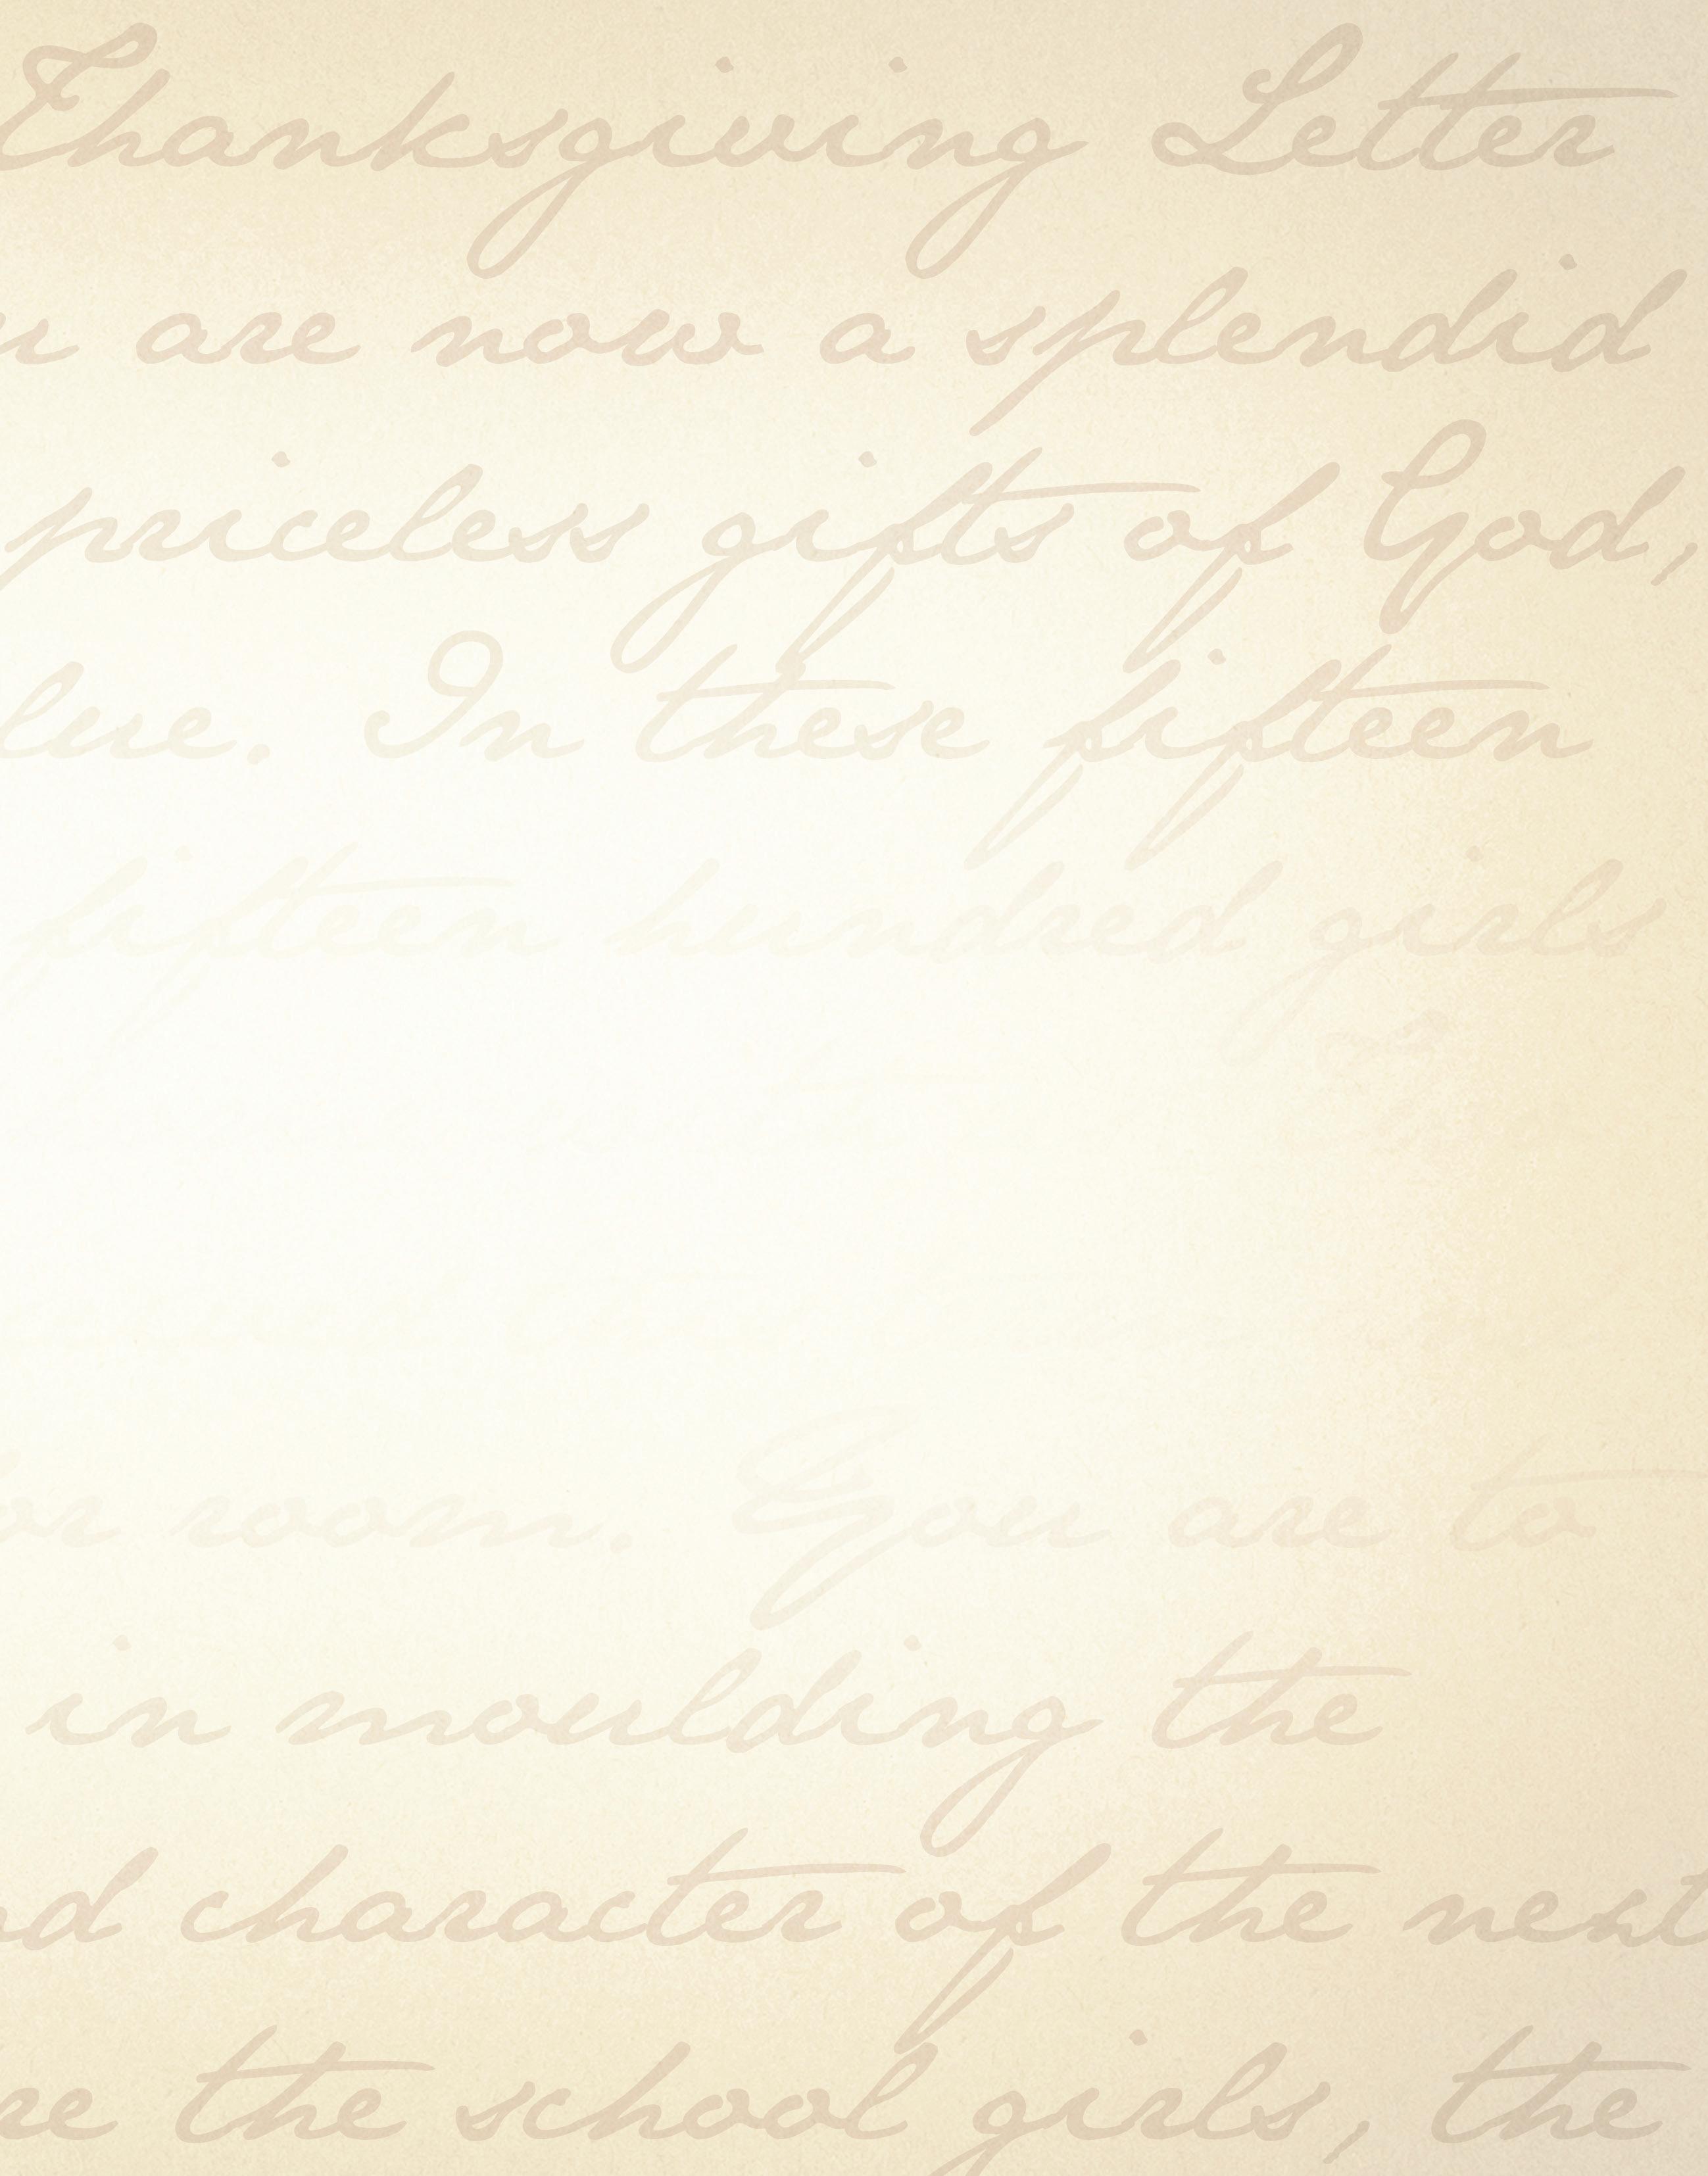 Thanksgiving Letter
u are now a splendid
priceless gifts of God,
lue. In these fifteen
fifteen hundred girls
or room. You are to
in moulding the
d character of the next
re the school girls, the